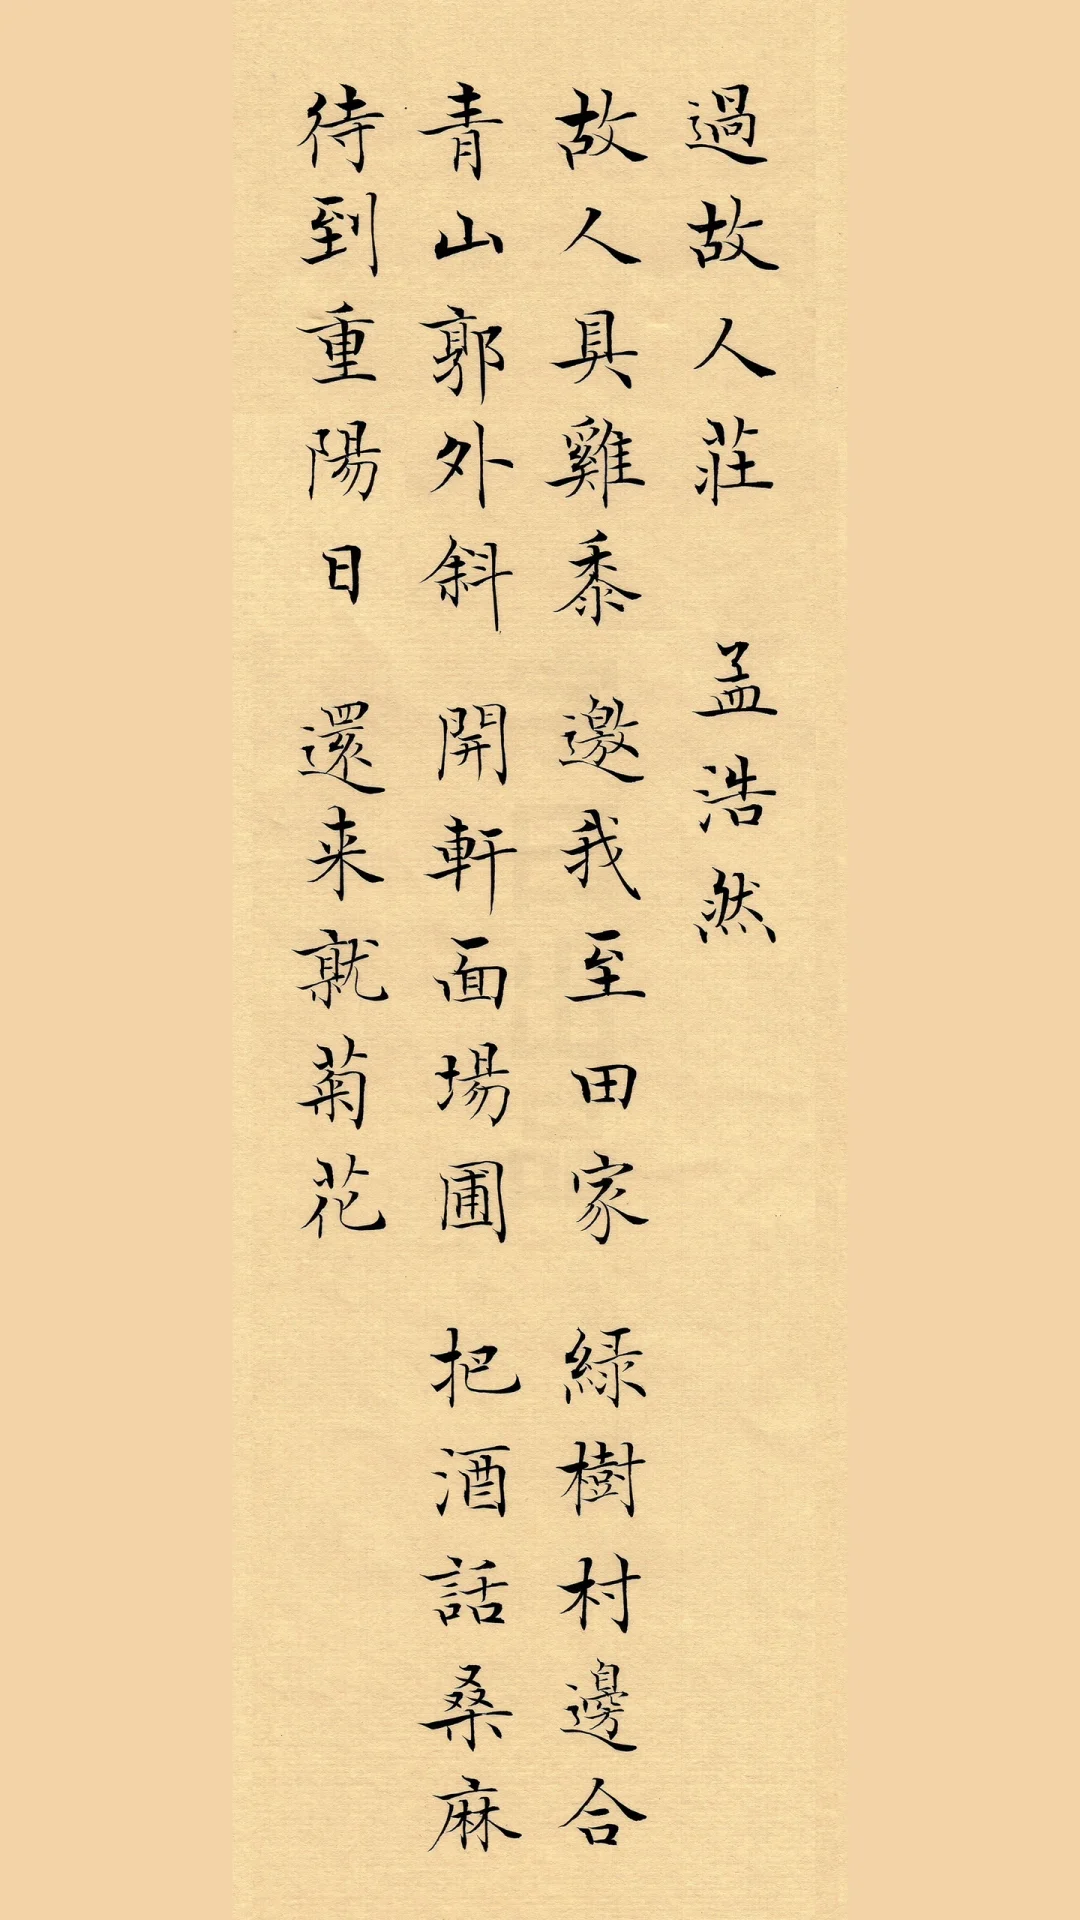 過故人莊 孟浩然
故人具雞黍 邀我至田家 綠樹村邊合
青山郭外斜 開軒面場圃 把酒話桑麻
待到重陽日 還来就菊花